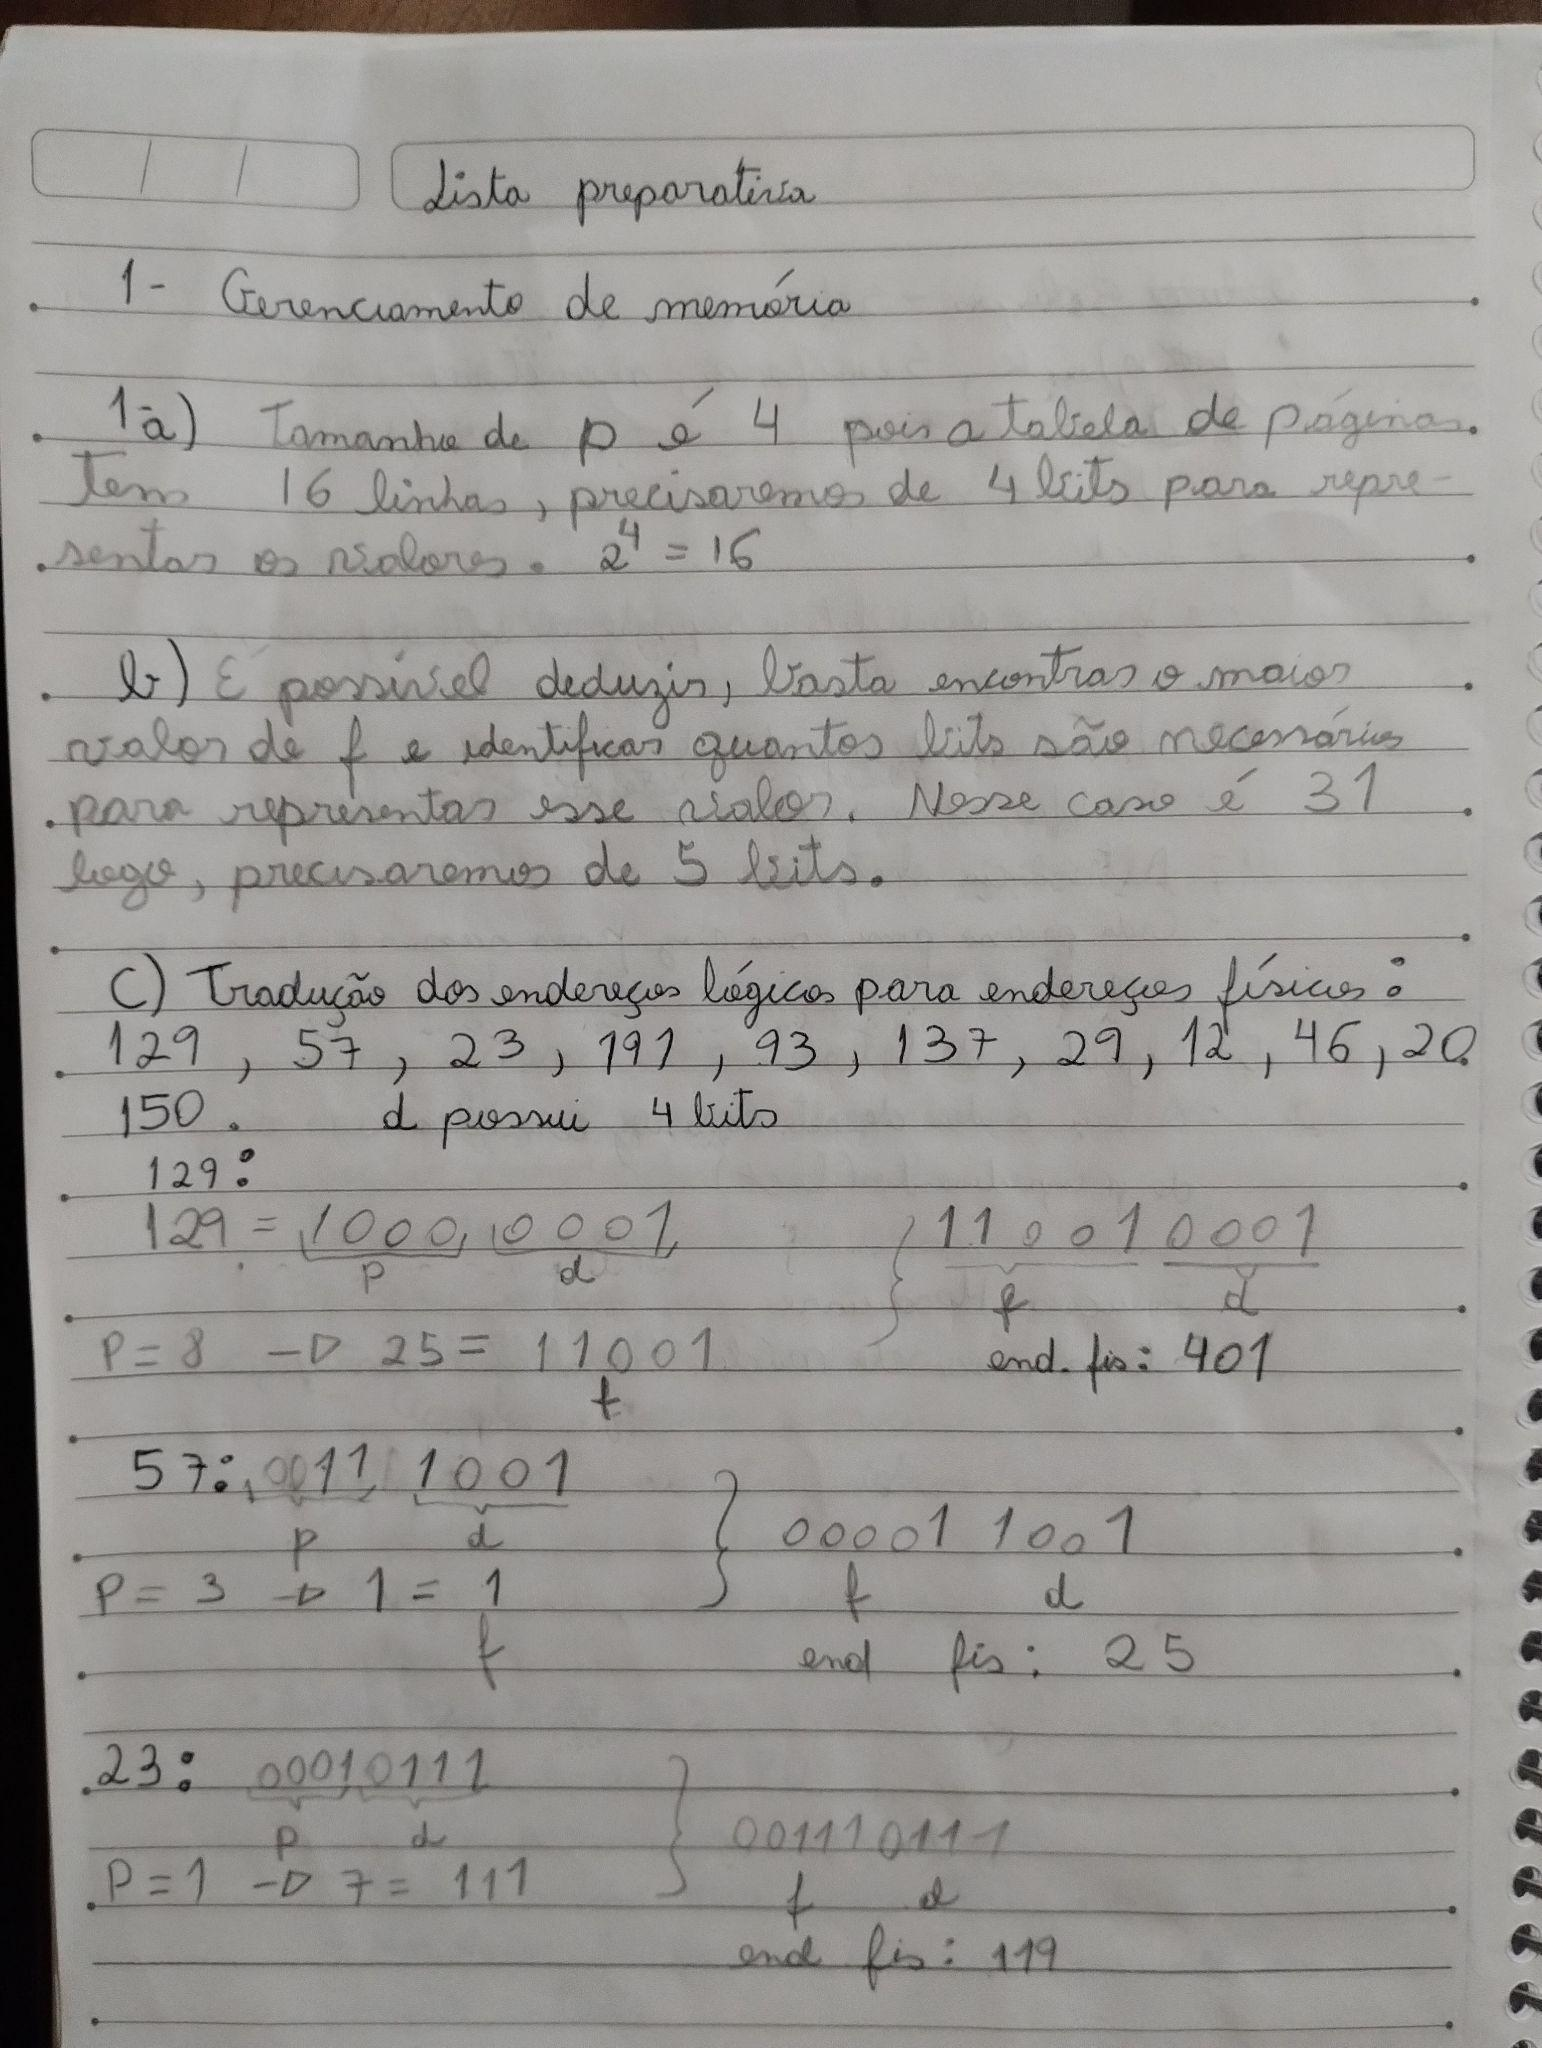 Lista preparatória
1- Gerenciamento de memória
1a) Tamanho de p é 4 pois a tabela de páginas
tem 16 linhas, precisaremos de 4 bits para repre-
sentar os valores. 2^4 = 16
b) É possível deduzir, basta encontrar o maior
valor de f e identificar quantos bits são necessários
para representar esse valor. Nesse caso é 31
logo, precisaremos de 5 bits.
C) Tradução dos endereços lógicos para endereços físicos:
129, 57, 23, 191, 93, 137, 29, 12, 46, 20
150. d possui 4 bits
129:
129 = 1000 0001 } 11001 0001
p d f d
P = 8 -> 25 = 11001 end. fis: 401
f
57: 0011 1001 } 00001 1001
p d
P = 3 -> 1 = 1 f d
f end fis: 25
23: 0001 0111 } 00111 0111
p d
P = 1 -> 7 = 111 f d
end fis: 119